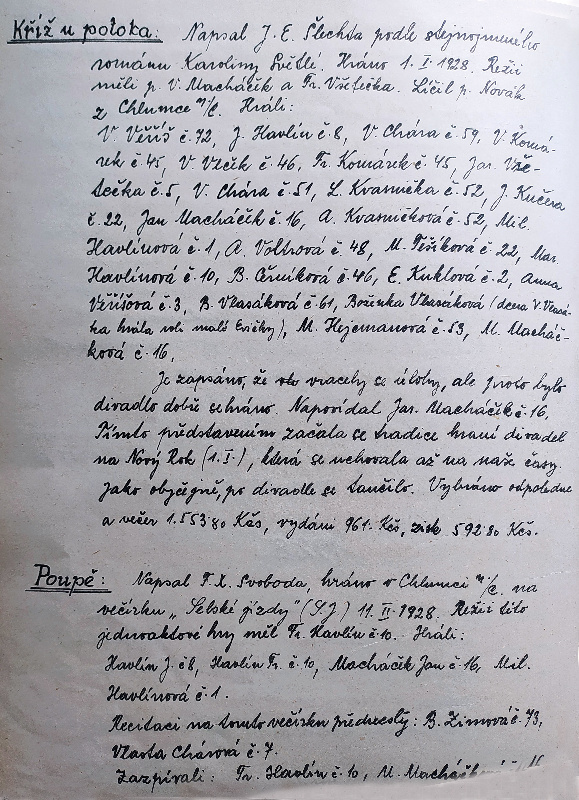 Kříž u potoka: Napsal J. E. Šlechta podle stejnojmeného
románu Karoliny Světlé. Hráno 1. I. 1928. Režii
měli p. V. Macháčik a Fr. Všetečka. Líčil p. Novák
z Chlumce n/C. Hráli:
V. Věříš č. 72, J. Havlín č. 8, V. Chára č. 59, V. Komá-
rek č. 45, V. Vlčik č. 46, Fr. Komárek č. 45, Jar. Vše-
tečka č. 5, V. Chára č. 51, L. Kvasnička č. 52, J. Kučera
č. 22, Jan Macháčik č. 16, A. Kvasničková č. 52, Mil.
Havlínová č. 1, A. Voltrová č. 48, M. Těšíková č. 22, Mar.
Havlínová č. 10, B. Černíková č. 46, E. Kuklova č. 2, Anna
Věříšová č. 3, B. Vlasáková č. 61, Boženka Vlasáková (dcera V. Vlasá-
ka hrála roli malé Evičky), M. Hejcmanová č. 53, M. Macháč-
ková č. 16.
Je zapsáno, že vracely se úlohy, ale proto bylo
divadlo dobře sehráno. Napovídal Jar. Macháčik č. 16.
Tímto představením začala se tradice hraní divadel
na Nový Rok (1. I.), která se uchovala až na naše časy.
Jako obyčejně, po divadle se tančilo. Vybráno odpoledne
a večer 1.553 80 Kčs, vydání 961.- Kčs, zisk 592 80 Kčs.
Poupě: Napsal F. X. Svoboda, hráno v Chlumci n/C. na
večírku "Selské jízdy" (S. J.) 11. II. 1928. Režii této
jednoaktové hry měl Fr. Havlín č. 10. Hráli:
Havlín J. č. 8, Havlín Fr. č. 10, Macháčik Jan č. 16, Mil.
Havlínová č. 1.
Recitaci na tomto večírku přednesly: B. Zimová č. 73,
Vlasta Chárová č. 7.
Zazpívali: Fr. Havlín č. 10, M.